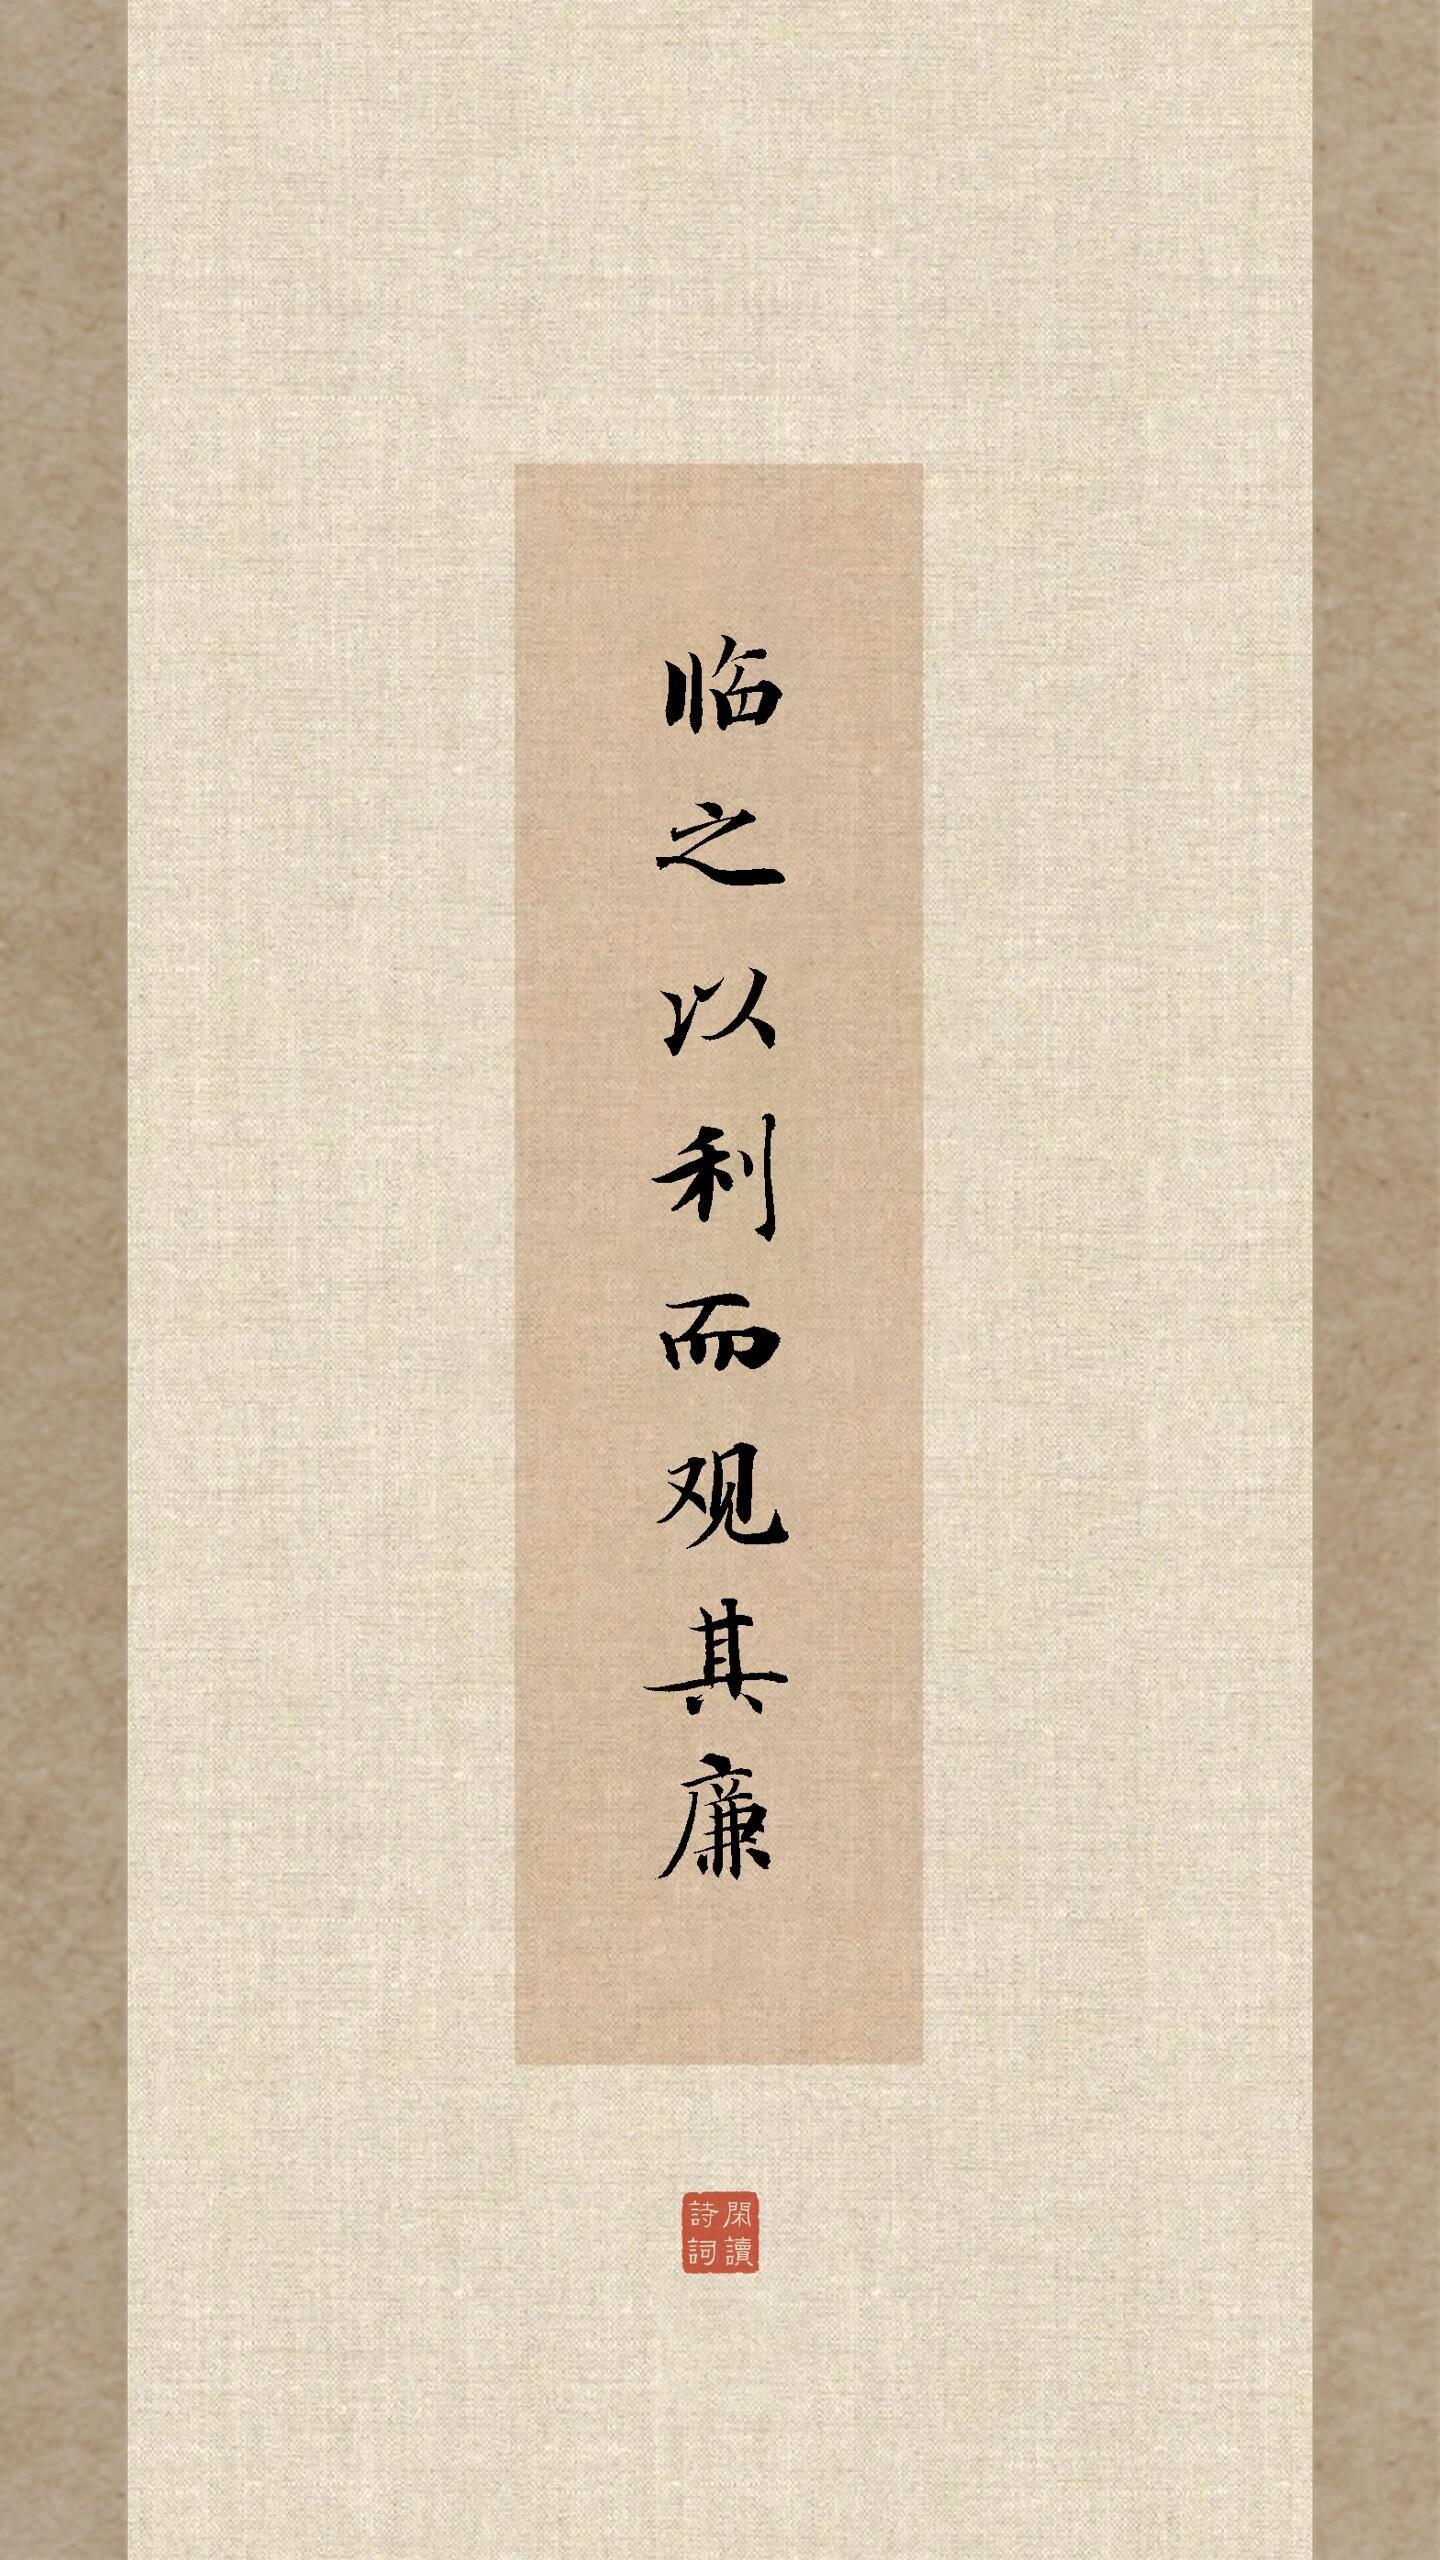 临之以利而观其廉
閑讀
詩詞